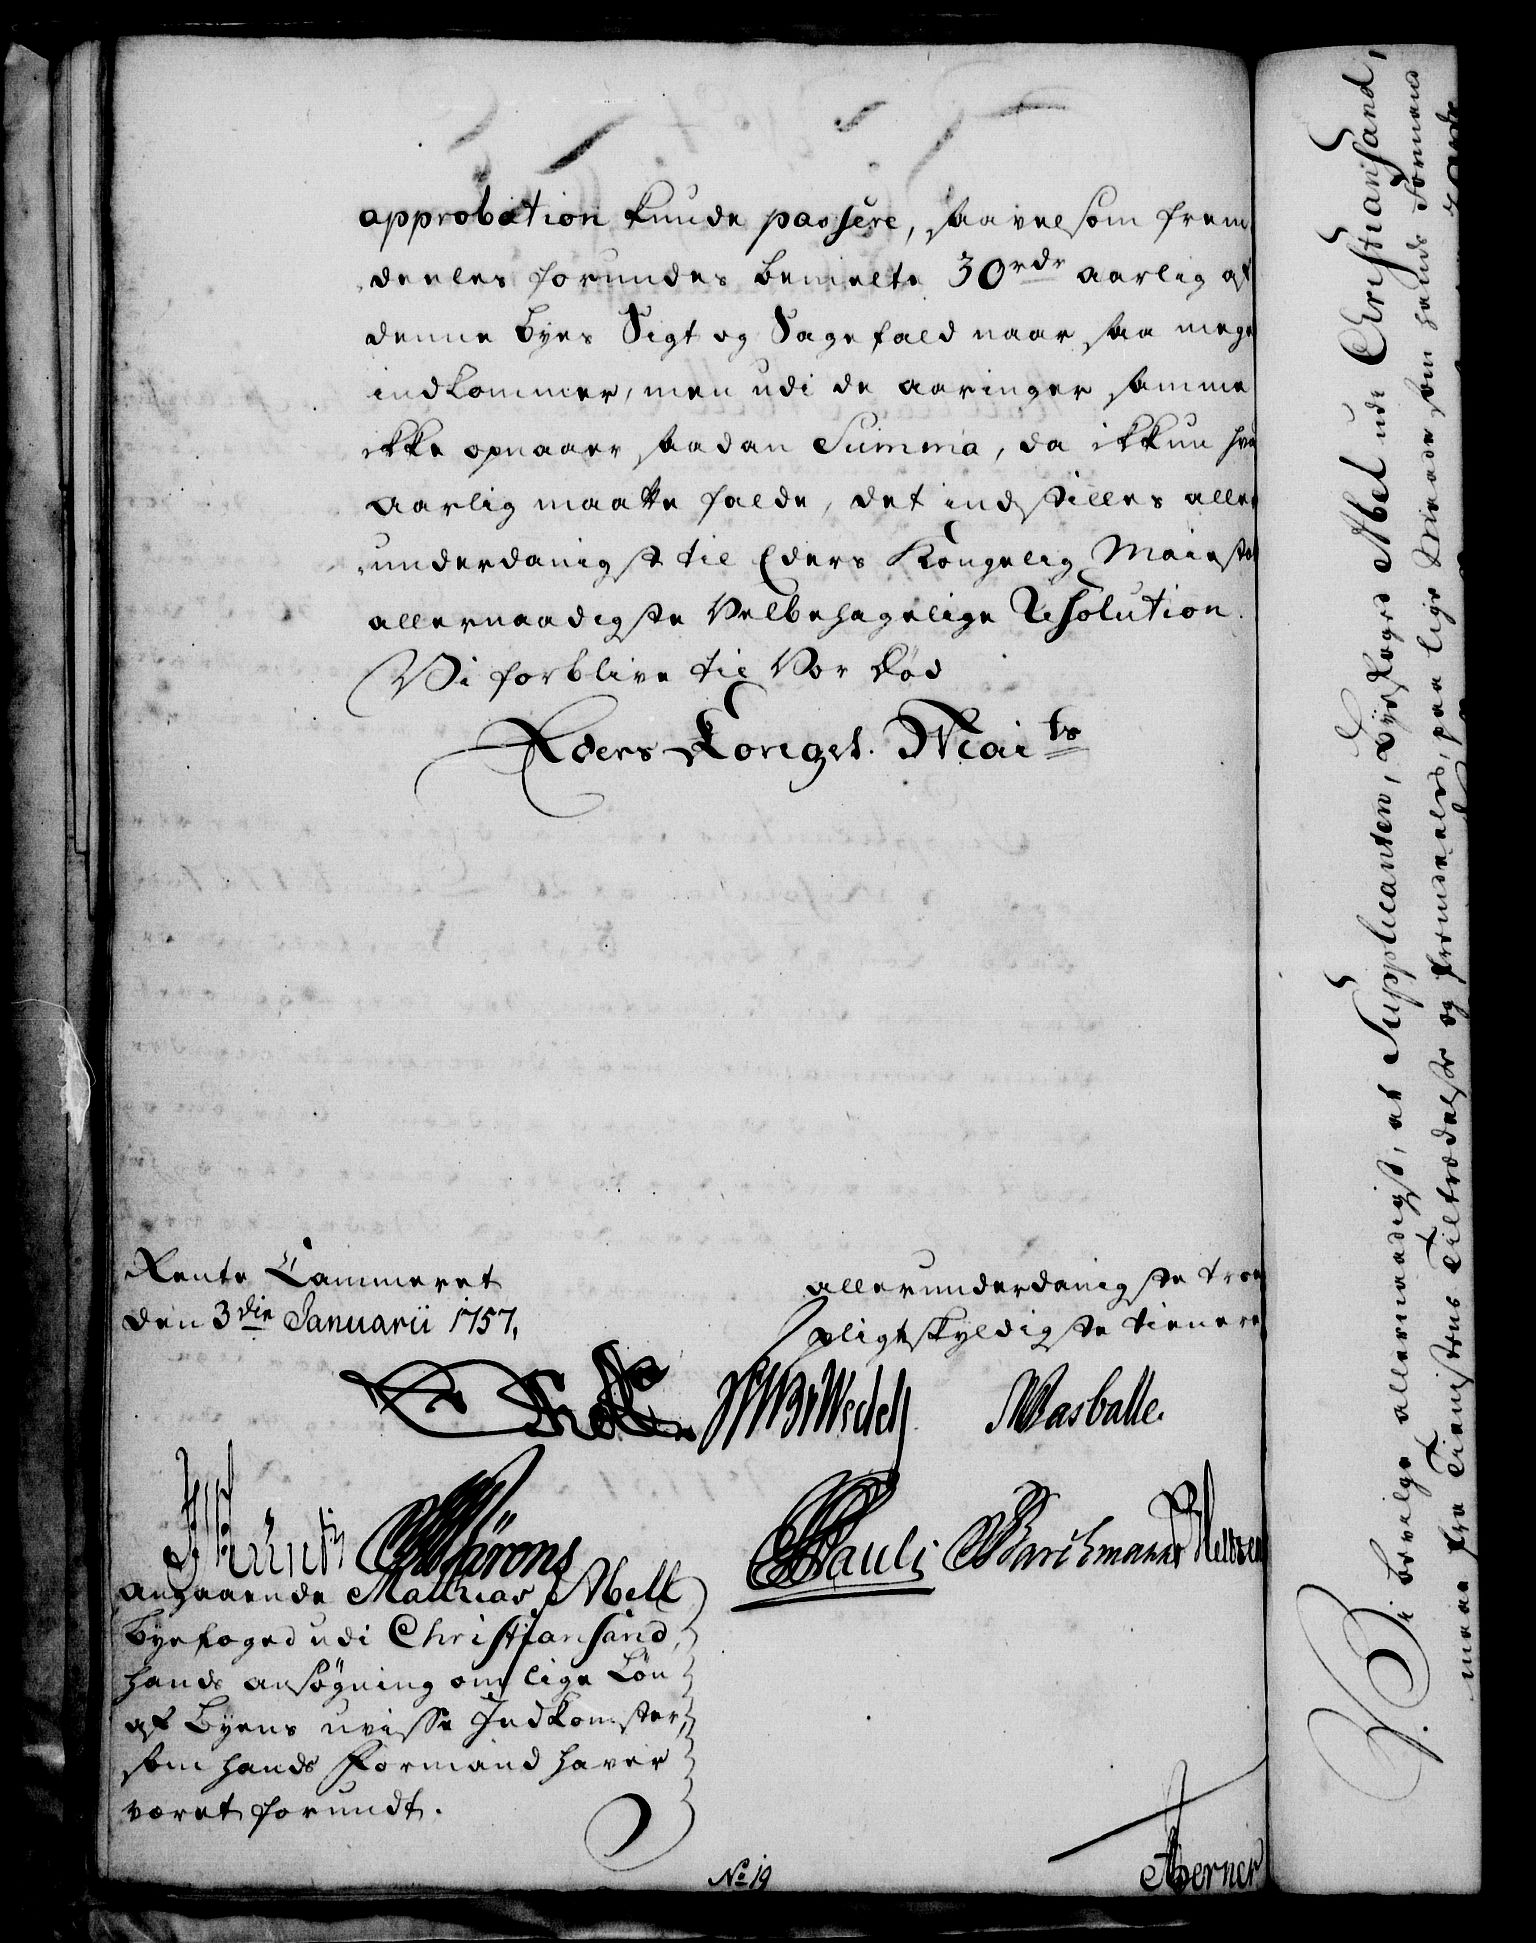 approbation kunde passere, saavelsom frem
deeles forundes bemelte 30 rdr aarlig af
denne Byes Sigt og Sagefald naar saa mege
indkommer, men udi de aaringer samme
ikke opnaaer saadan Summa, da ikkun hva
aarlig maatte falde, det indstilles aller
underdanigst til Eders Kongelig Maiest
allernaadigste Velbehagelige Resolution.
Vi forblive til Vor Død
Eders Kongel. Mai ts
Rente Cammeret
den 3die Januarii 1757.
allerunderdanigste troe
pligtskyldigste tienere
Wedell Wasballe.
Pauli
angaaende Mathias Abell
Byefoged udi Christiansand,
hands ansøgning om lige Løn
af Byens uvisse Indkomster,
som hands Formand haver
været forundt.
No 19
Vi bevilge allernaadigst, at Supplicanten, Byefoged Abel udi Christiansand,
maae fra Tienestens Tiltrædelse og fremdeeles, paa lige Maade som hands Formand